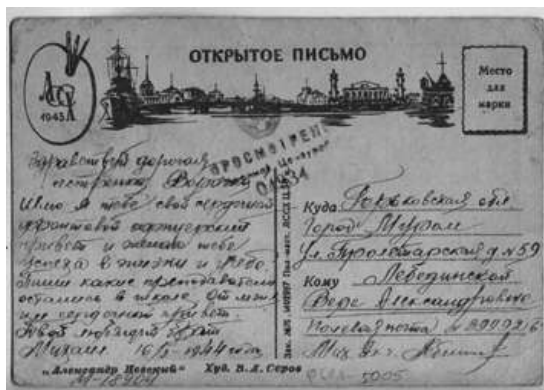 ОТКРЫТОЕ ПИСЬМО
1943
Место
для
марки
ПРОСМОТРЕНО
Военной Цензурой
Здравствуй дорогая
сестренка
Шлю я тебе свой сердечный
фронтовой
привет и желаю тебе
успеха в жизни и учебе.
Пиши какие преподаватели
остались в школе. От меня
им сердечный привет.
Твой любящий брат
Михаил 1944 года
Куда Горьковская обл.
Город Муром
ул. Пролетарская д. №59
Кому Лебединской
Вере Александровне
Полевая почта
„Александр Невский“ Худ. В. А. Серов
М-18404